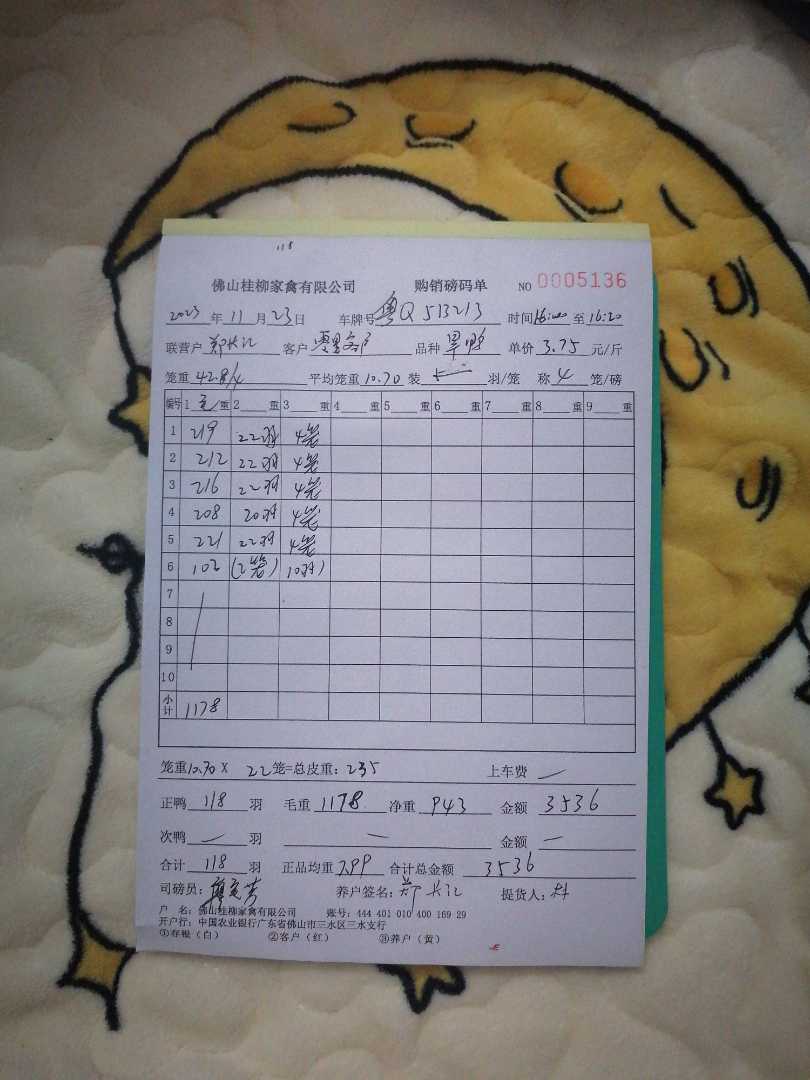 118
佛山桂柳家禽有限公司 购销磅码单 NO 0005136
2023年11月23日 车牌号粤Q513213 时间16:00至16:20
联营户郑长江 客户 品种旱鸭 单价3.75元/斤
笼重42.8/4 平均笼重10.70装 羽/笼 称4笼/磅
编号 1毛/重 2 重 3 重 4 重 5 重 6 重 7 重 8 重 9 重
1 219 22羽 4笼
2 212 22羽 4笼
3 216 22羽 4笼
4 208 20羽 4笼
5 221 22羽 4笼
6 102 (2笼) 10羽)
7
8
9
10
小计 1178
笼重10.70× 22笼=总皮重:235 上车费 一
正鸭118羽 毛重1178 净重943 金额3536
次鸭一羽 一 金额一
合计118羽 正品均重7.99 合计总金额3536
司磅员: 养户签名:郑长江 提货人:林
户 名:佛山桂柳家禽有限公司 账号:444 401 010 400 169 29
开户行:中国农业银行广东省佛山市三水区三水支行
①存根(白) ②客户(红) ③养户(黄)